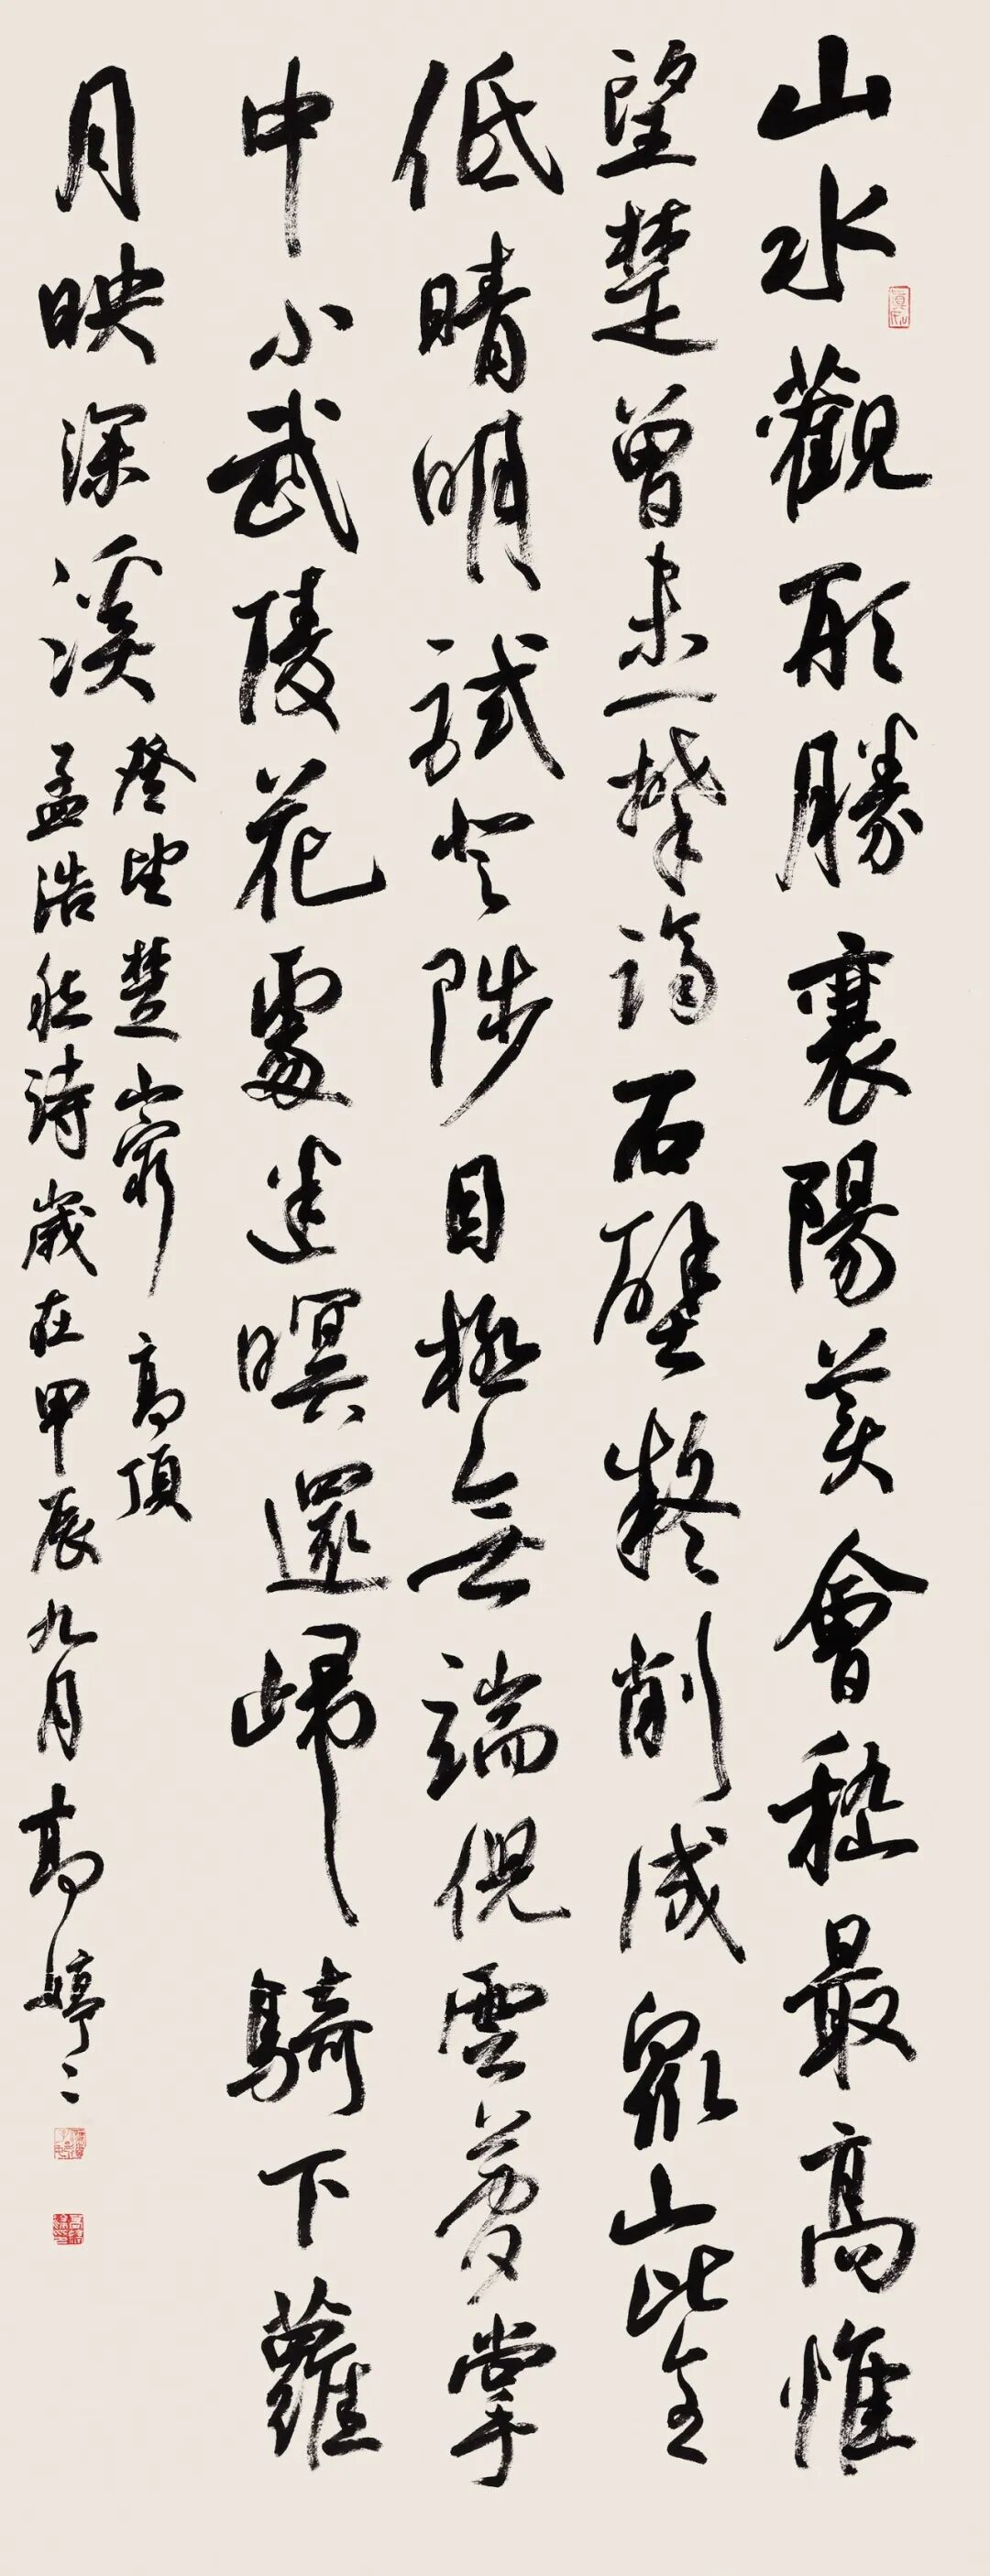 山水觀形勝襄陽美會嵇最高惟
望楚曾未一攀躋石壁疑削成眾山比全
低晴明試登陟目極無端倪雲夢掌
中小武陵花處迷暝還歸騎下蘿
月映深溪
登望楚山最高頂
孟浩然詩歲在甲辰九月高婷々